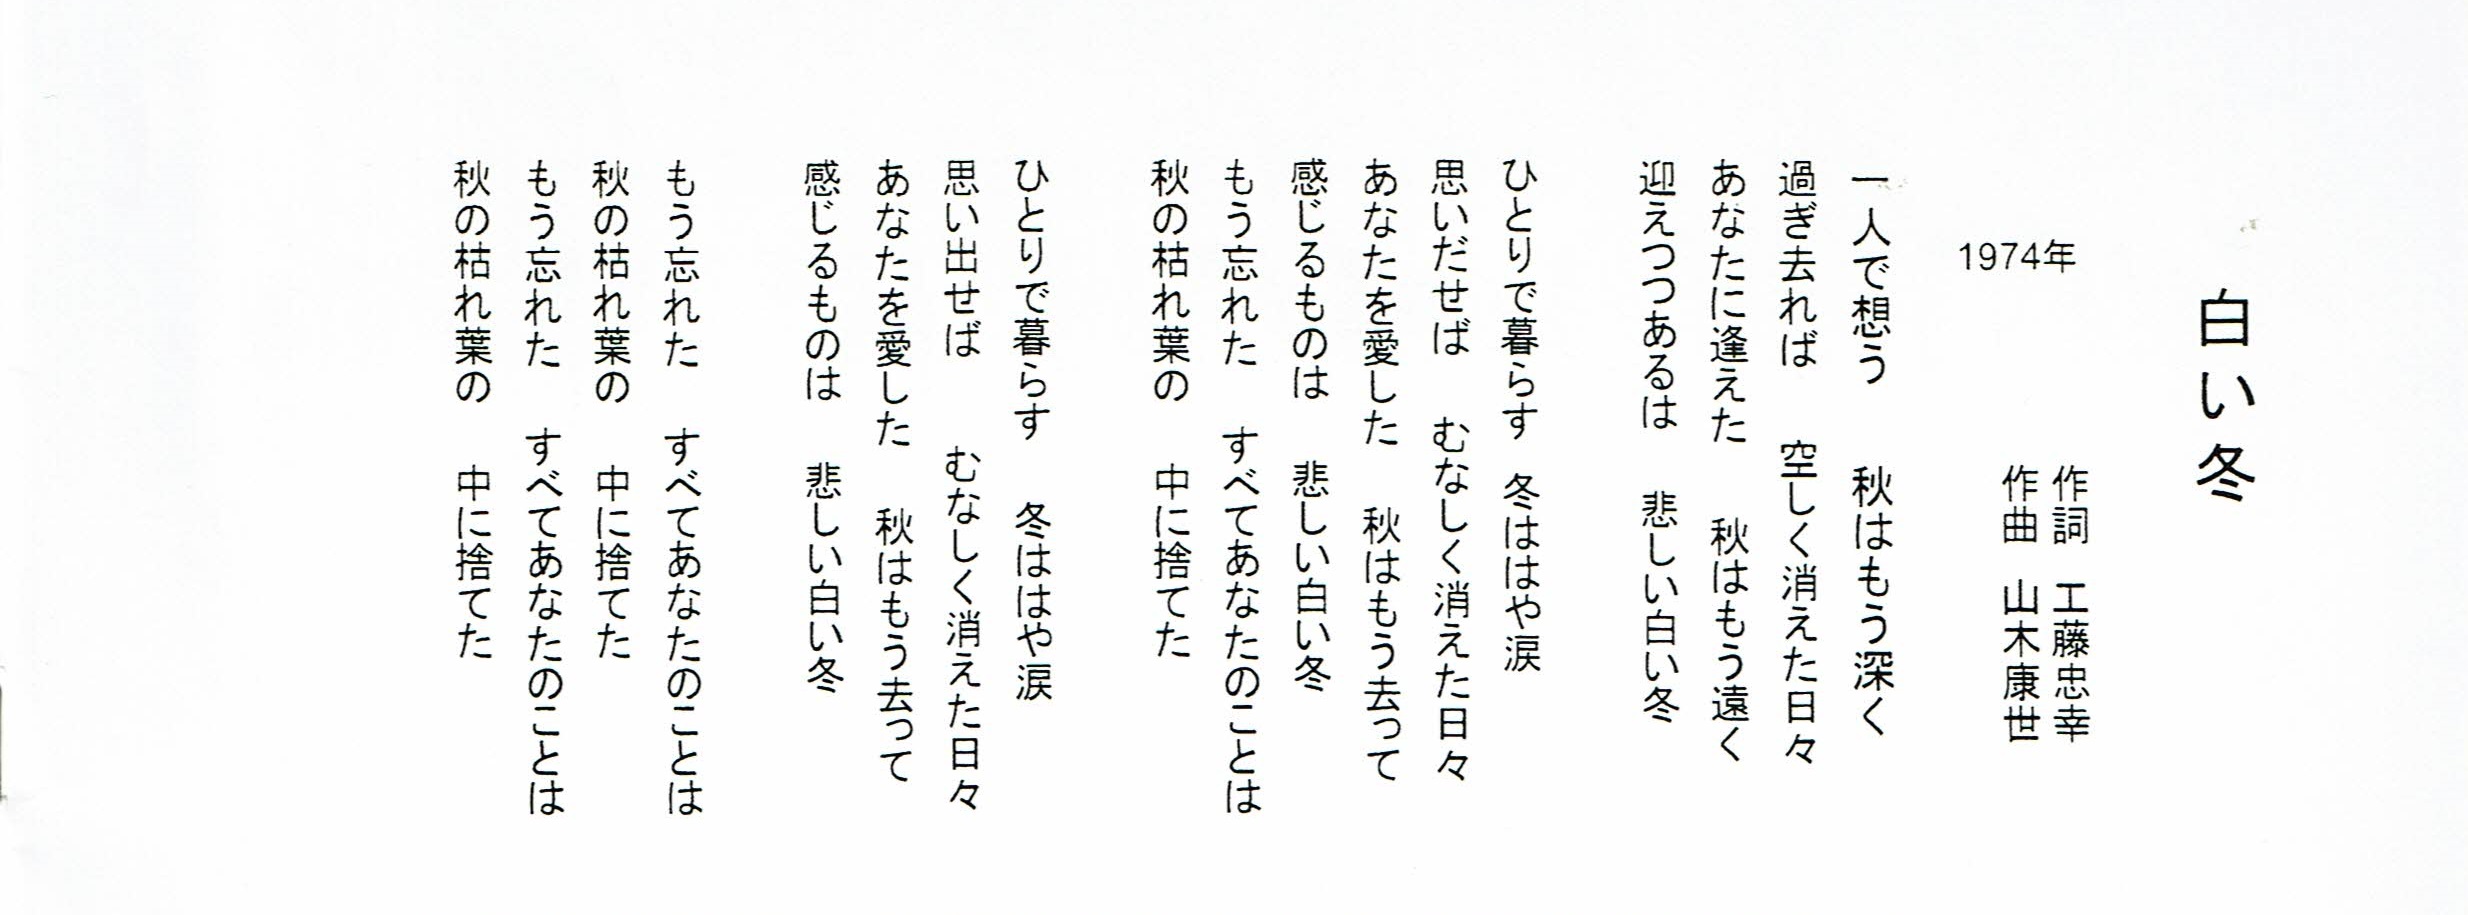 白い冬
作詞　工藤忠幸
作曲　山木康世
1974年
一人で想う　秋はもう深く
過ぎ去れば　空しく消えた日々
あなたに逢えた　秋はもう遠く
迎えつつあるは　悲しい白い冬
ひとりで暮らす　冬ははや涙
思いだせば　むなしく消えた日々
あなたを愛した　秋はもう去って
感じるものは　悲しい白い冬
もう忘れた　すべてあなたのことは
秋の枯れ葉の　中に捨てた
ひとりで暮らす　冬ははや涙
思い出せば　むなしく消えた日々
あなたを愛した　秋はもう去って
感じるものは　悲しい白い冬
もう忘れた　すべてあなたのことは
秋の枯れ葉の　中に捨てた
もう忘れた　すべてあなたのことは
秋の枯れ葉の　中に捨てた